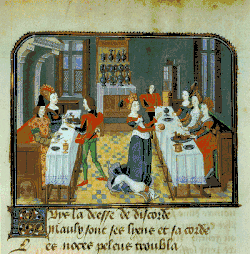 la deesse de discorde
Maulx sont ses liens et sa corde
Les noces peleus troubla